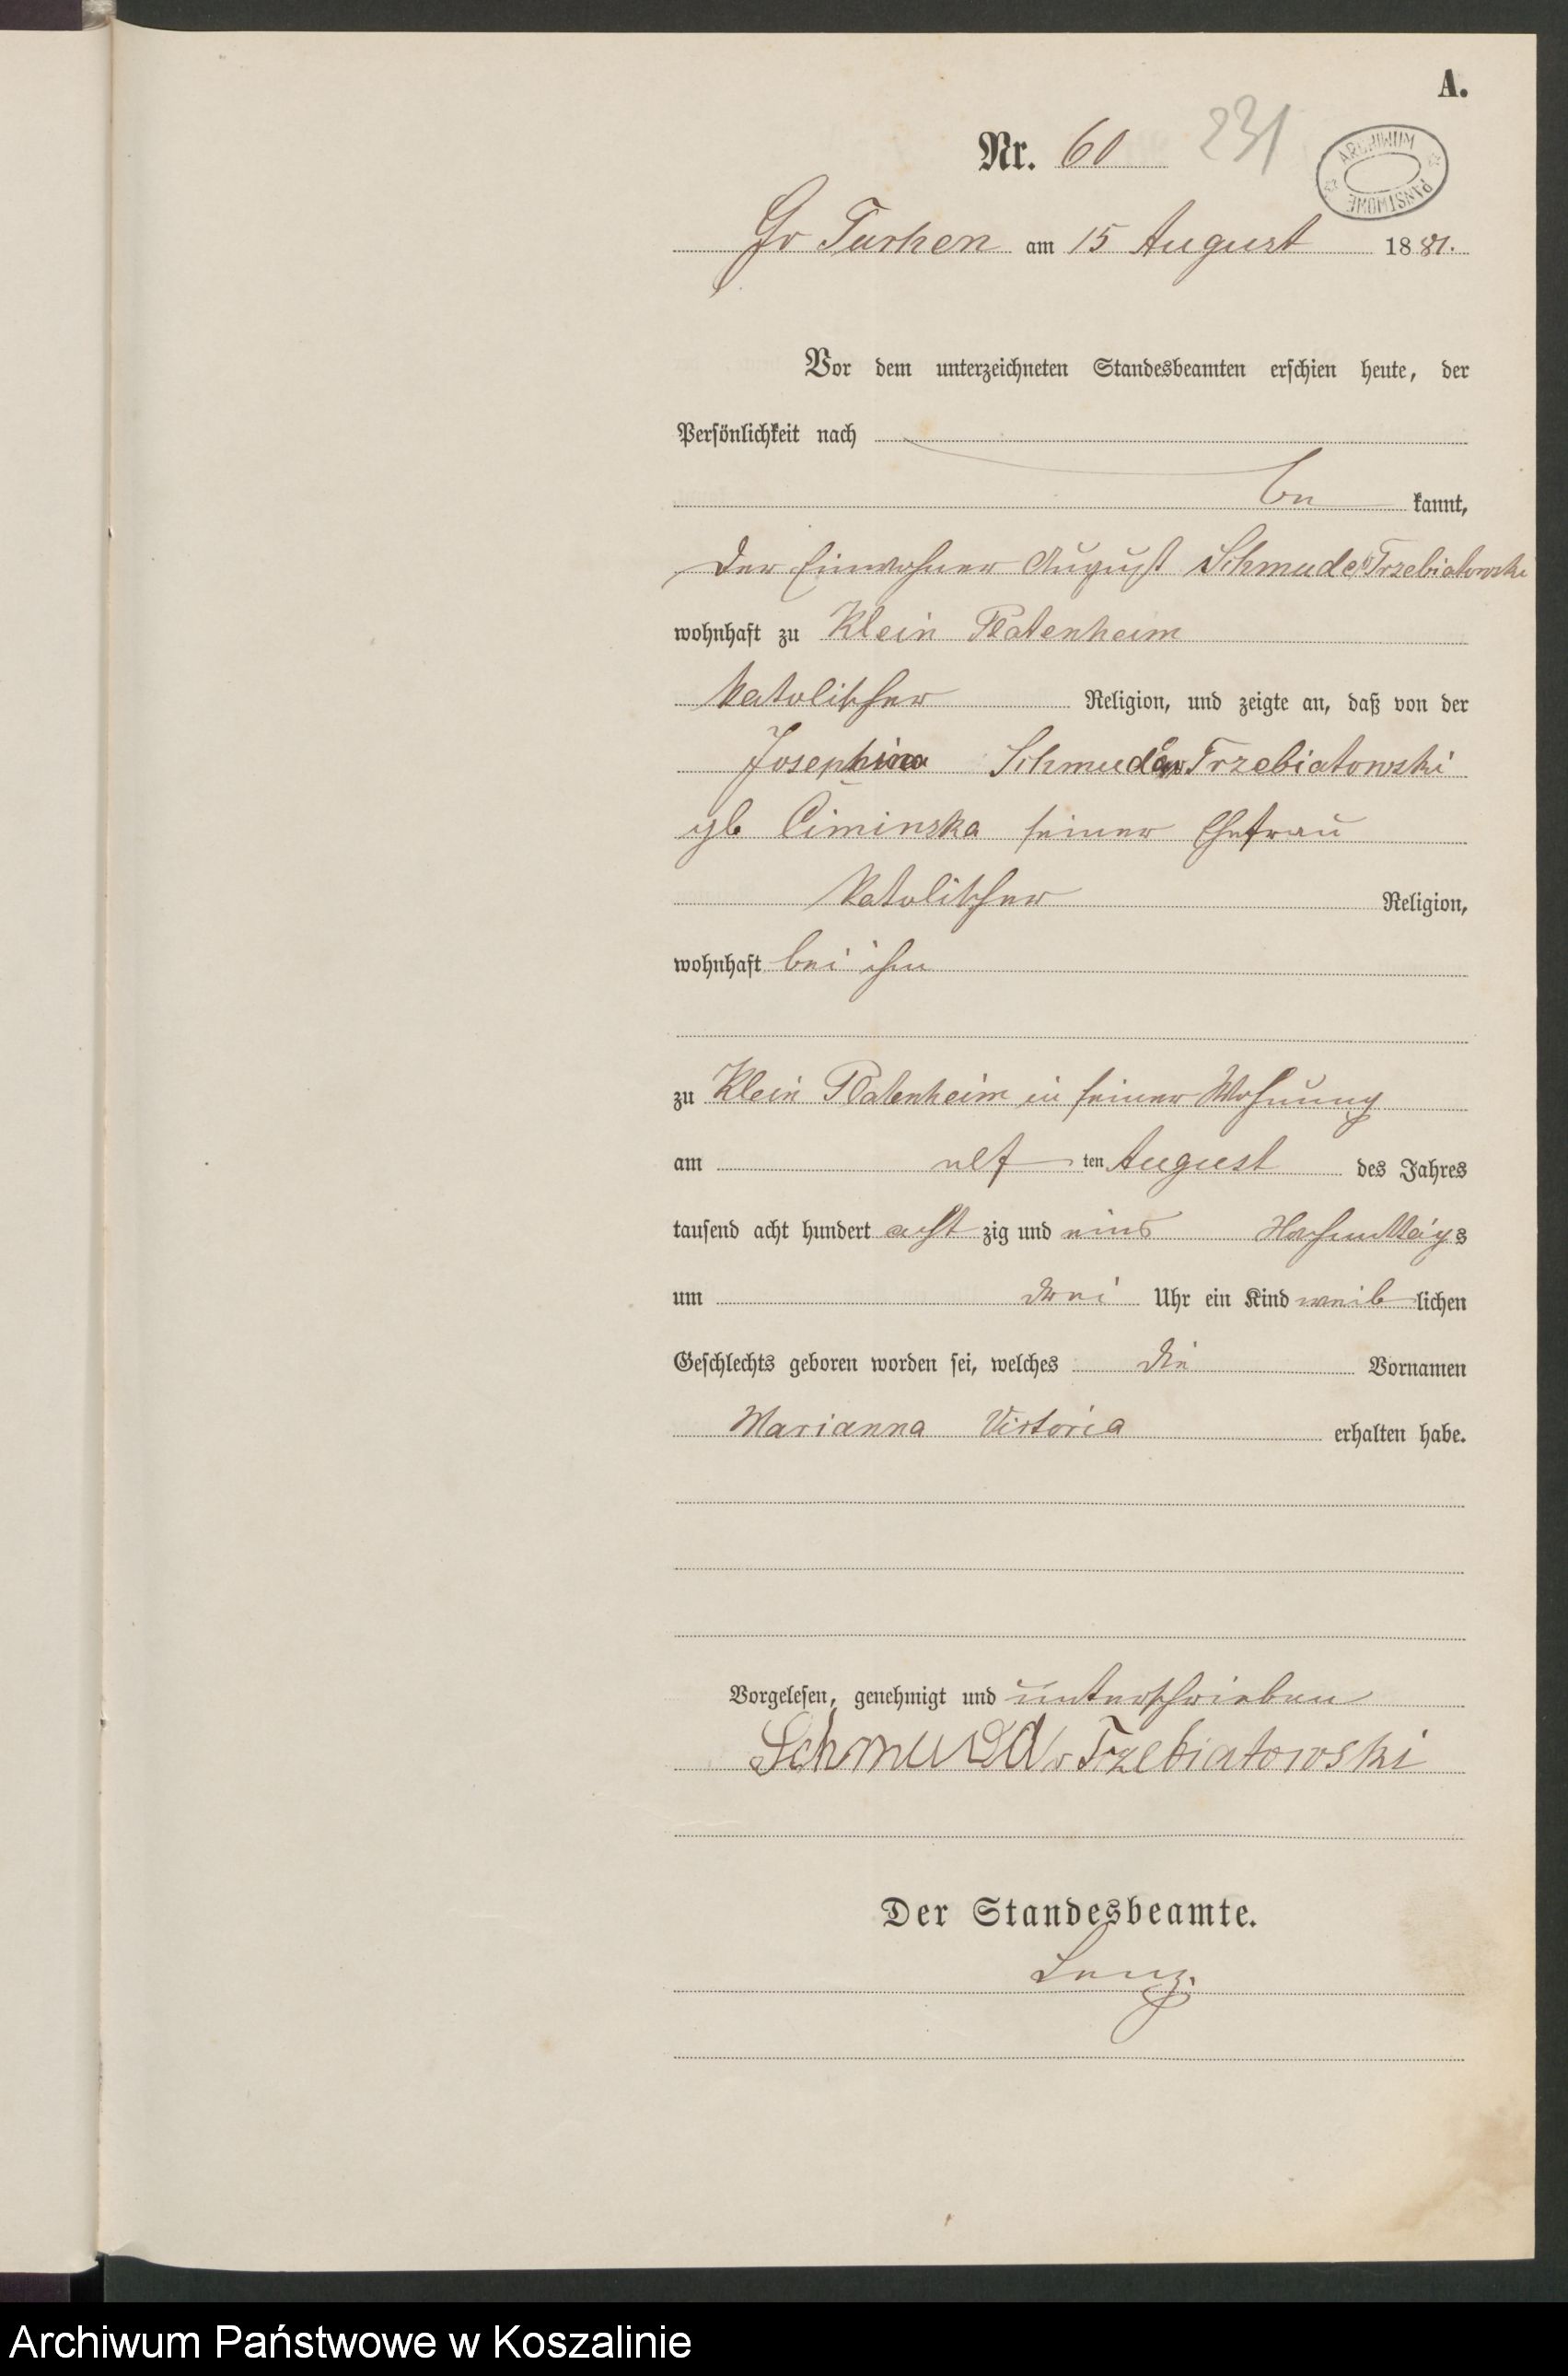 A.
Nr. 60 231
ARCHIWUM PAŃSTWOWE
Gr Tuchen am 15 August 1881.
Vor dem unterzeichneten Standesbeamten erschien heute, der
Persönlichkeit nach
be kannt,
der Einwohner August Schmude v Trzebiatowski
wohnhaft zu Klein Platenheim
katolischer Religion, und zeigte an, daß von der
Josephina Schmude v Trzebiatowski
gb Ciminska seiner Ehefrau
katolischer Religion,
wohnhaft bei ihm
zu Klein Platenheim in seiner Wohnung
am elf ten August des Jahres
tausend acht hundert acht zig und eins Nachmittags
um drei Uhr ein Kind weib lichen
Geschlechts geboren worden sei, welches die Vornamen
Marianna Victoria erhalten habe.
Vorgelesen, genehmigt und unterschrieben
v Trzebiatowski
Der Standesbeamte.
Lenz.
Archiwum Państwowe w Koszalinie